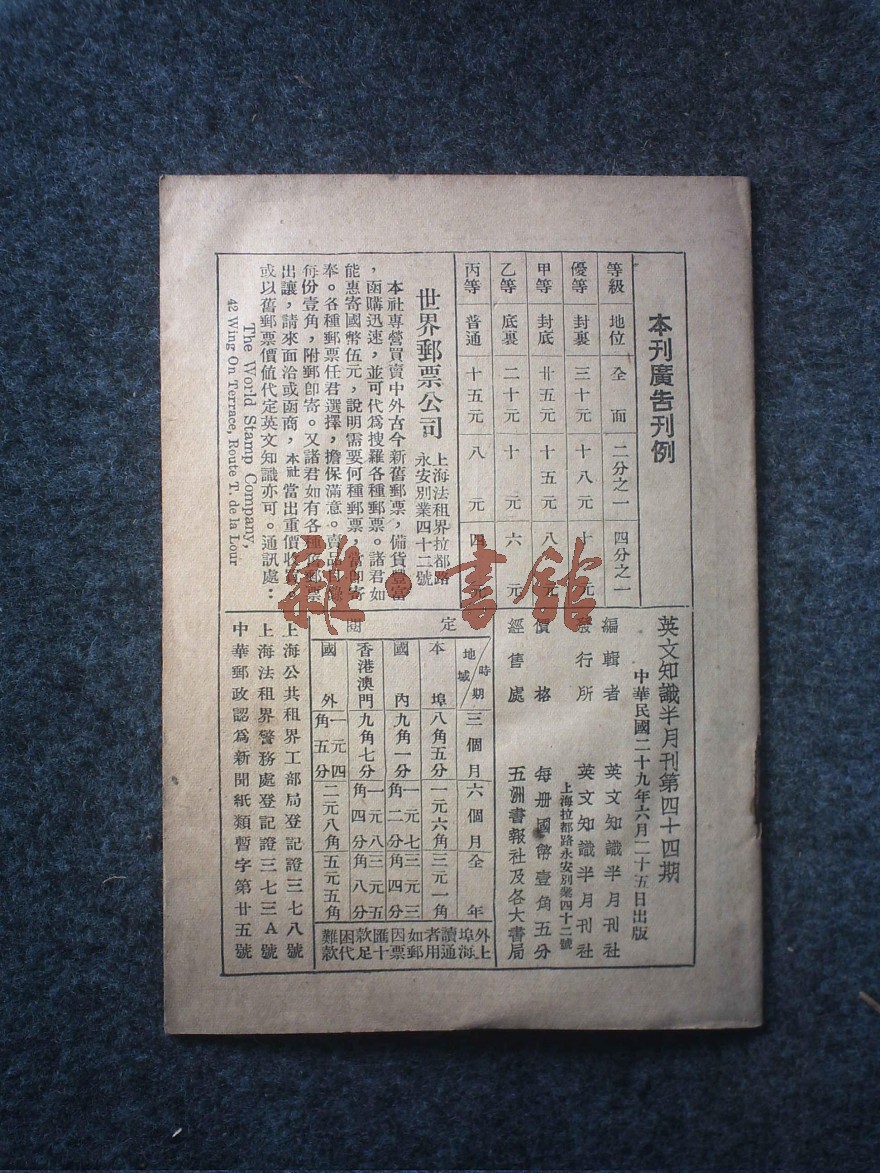 本刊廣告刊例
等級 地位 全面 二分之一 四分之一
優等 封裏 三十元 十八元 十元
甲等 封底 廿五元 十五元 八元
乙等 底裏 二十元 十元 六元
丙等 普通 十五元 八元 四元
世界郵票公司
上海法租界拉都路
永安別業四十二號
本社專營買賣中外古今新舊郵票，備貨豐富
，函購迅速，並可代爲搜羅各種郵票。諸君如
能惠寄國幣伍元，說明需要何種郵票，當卽寄
奉。各種郵票任君選擇，擔保滿意。賣品目錄
每份壹角，附郵卽寄。又諸君如有各種舊郵票
出讓，請來面洽或函商，本社當出重價收
或以舊郵票價値代定英文知識亦可。通訊處：
The World Stamp Company,
42 Wing On Terrace, Route T. de la Lour
英文知識半月刊第四十四期
中華民國二十九年六月二十五日出版
編輯者 英文知識半月刊社
發行所 英文知識半月刊社
上海拉都路永安別業四十二號
價格 每册國幣壹角五分
經售處 五洲書報社及各大書局
定閱
時期 地域 三個月 六個月 全年
本埠 八角五分 一元六角 三元一角
國內 九角一分 一元七角二分 三元三角四分
香港澳門 九角七分 一元八角四分 三元五角八分
國外 一元四角五分 二元八角 五元五角
外埠讀者如因匯款困難
上海通用郵票十足代款
上海公共租界工部局登記證三七八號
上海法租界警務處登記證三七三A號
中華郵政認爲新聞紙類暫字第廿五號
雜·書館